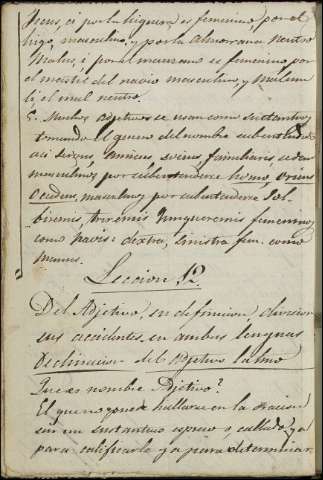 Ficus, ci por la higuera es femenino por el
higo, masculino, y por la Almorrana neutro
Malus, i por el manzano es femenino por
el mastil del navio masculino, y Malum
li, el mal neutro.
5.ª Muchos adjetivos se usan como sustantivos
tomando el genero del nombre subentendido
asi decimos, amicus, socius, familiaris,
masculinos por subentenderse homo, Oriens
Occidens, masculinos por subentenderse Sol-
biremis, triremis femeninos
como navis: dextra, sinistra fem. como
manus.
Leccion 12.
Del Adjetivo, su definicion, division
sus accidentes en ambas lenguas
Declinacion del Adjetivo latino
Que es nombre Adjetivo?
El que no puede hallarse en la oracion
sin un sustantivo espreso o callado, ya
para calificarle ya para determinar